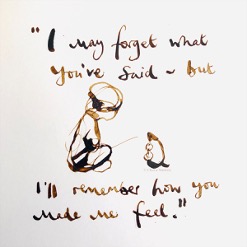 "I may forget what
you've said - but
I'll remember how you
made me feel."